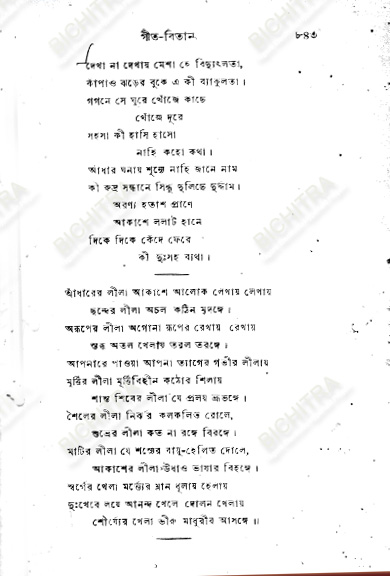 গীত-বিতান
৮৪৩
দেখা না দেখায় মেশা হে বিদ্যুৎলতা,
কাঁপাও ঝড়ের বুকে এ কী ব্যাকুলতা।
গগনে সে ঘুরে খোঁজে কাছে
খোঁজে দূরে
সহসা কী হাসি হাসো
নাহি কহো কথা।
আঁধার ঘনায় শূন্যে নাহি জানে নাম
কী রুদ্র সন্ধানে সিন্ধু দুলিছে দুদ্দাম।
অরণ্য হতাশ প্রাণে
আকাশে ললাট হানে
দিকে দিকে কেঁদে ফেরে
কী দুঃসহ ব্যথা।
আঁধারের লীলা আকাশে আলোক লেখায় লেখায়
ছন্দের লীলা অচল কঠিন মৃদঙ্গে।
অরূপের লীলা অগোনা রূপের রেখায় রেখায়
স্তব্ধ অতল খেলায় তরল তরঙ্গে।
আপনারে পাওয়া আপনা ত্যাগের গভীর লীলায়
মূর্ত্তির লীলা মূর্ত্তিবিহীন কঠোর শিলায়
শান্ত শিবের লীলা যে প্রলয় ভ্রূভঙ্গে।
শৈলের লীলা নির্ঝর কলকলিত রোলে,
শুভ্রের লীলা কত না রঙ্গে বিরঙ্গে।
মাটির লীলা যে শস্যের বায়ু-হেলিত দোলে,
আকাশের লীলা উধাও ভাষার বিহঙ্গে।
স্বর্গের খেলা মর্ত্ত্যের ম্লান ধূলায় হেলায়
দুঃখেরে লয়ে আনন্দ খেলে দোলন খেলায়
শৌর্য্যের খেলা ভীরু মাধুরীর আসঙ্গে॥
BICHITRA